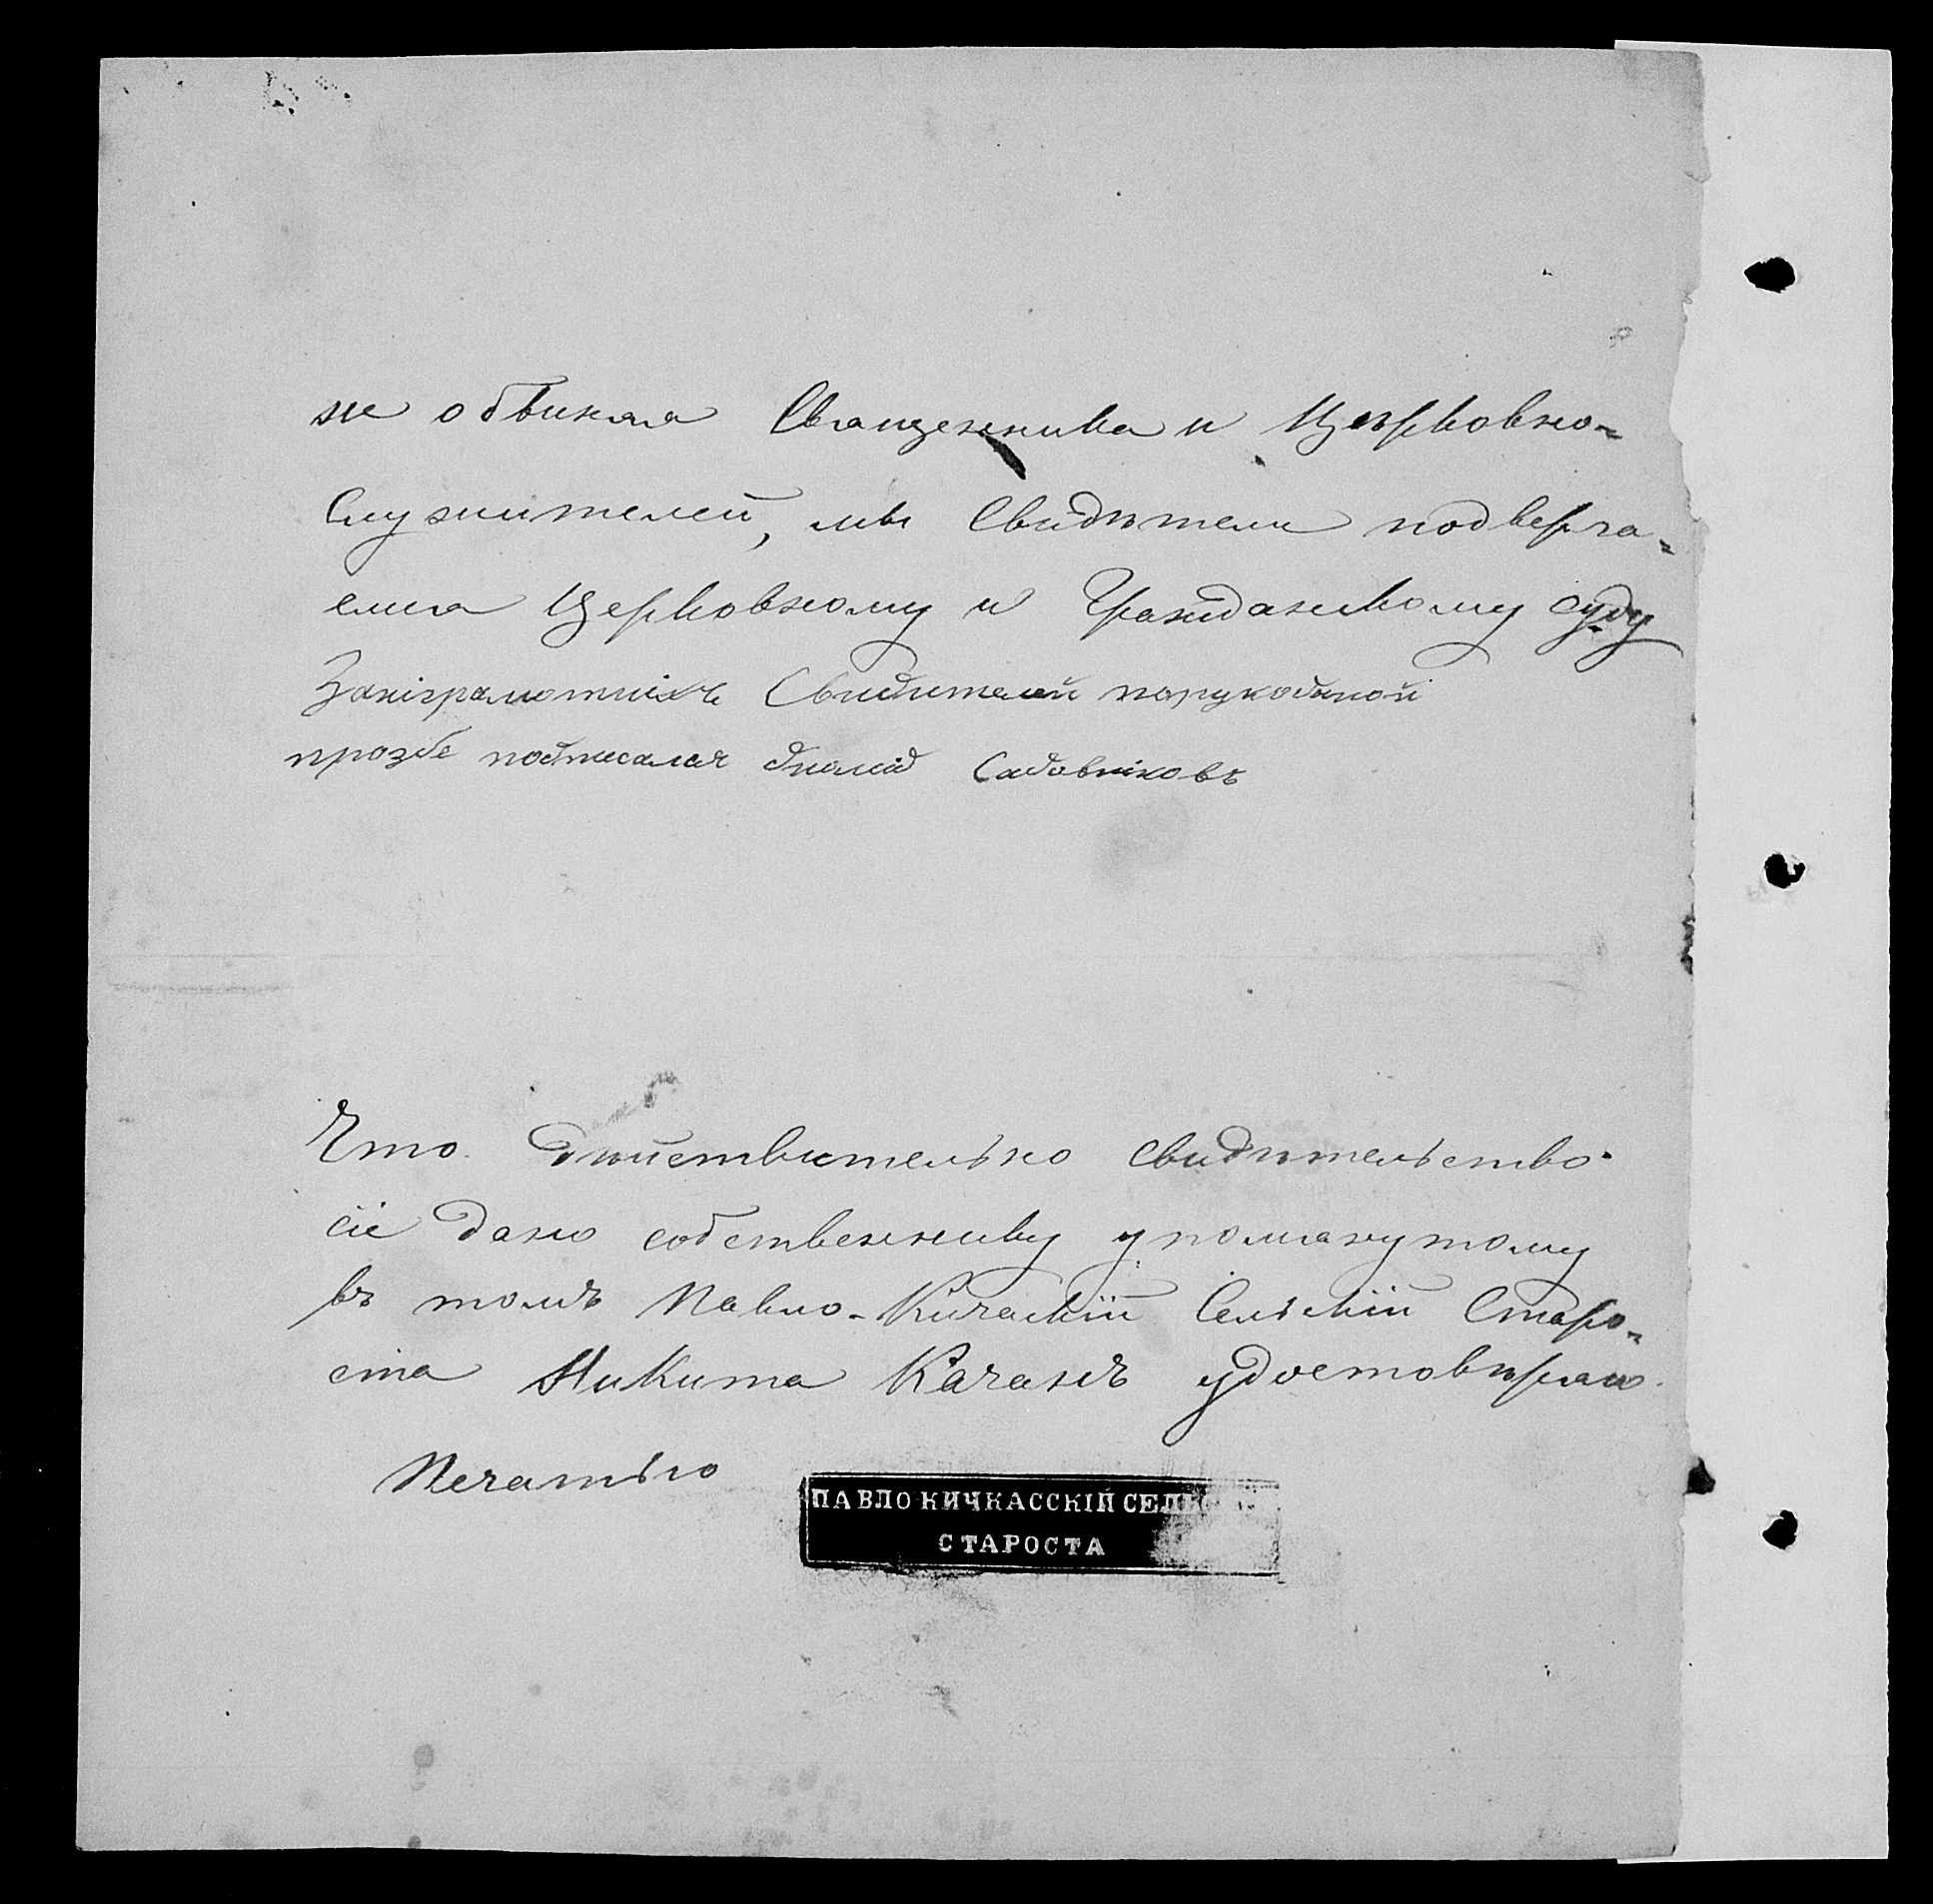 не обвиняя Священника и Церковно-
Служителей, мы Свидѣтели подверга-
емся Церковному и Гражданскому суду
Занiграмотнiхъ Свидителей порукоданой
прозбе подписалса Садовнiковъ
Что Дѣйствительно свидѣтельство
сіе дано собственнику упомянутому
въ томъ Павло-Кичаскій Сельскій Старо-
ста Никита Качанъ удостовѣряю
Печатью
ПАВЛО КИЧКАССКІЙ СЕЛЬ
СТАРОСТА